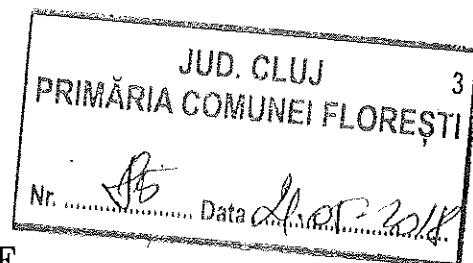 JUD. CLUJ 3
PRIMĂRIA COMUNEI FLOREȘTI
Nr. ........ Data ........ 2018
E